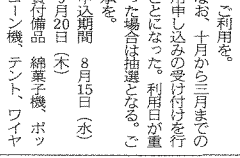 ご利用を。
なお、十月から三月までの
用申し込みの受け付けを行
とになった。利用日が重
た場合は抽選となる。ご
承を。
込期間 8月15日(水)
月20日(木)
付備品 綿菓子機、ポッ
ーン機、テント、ワイヤ